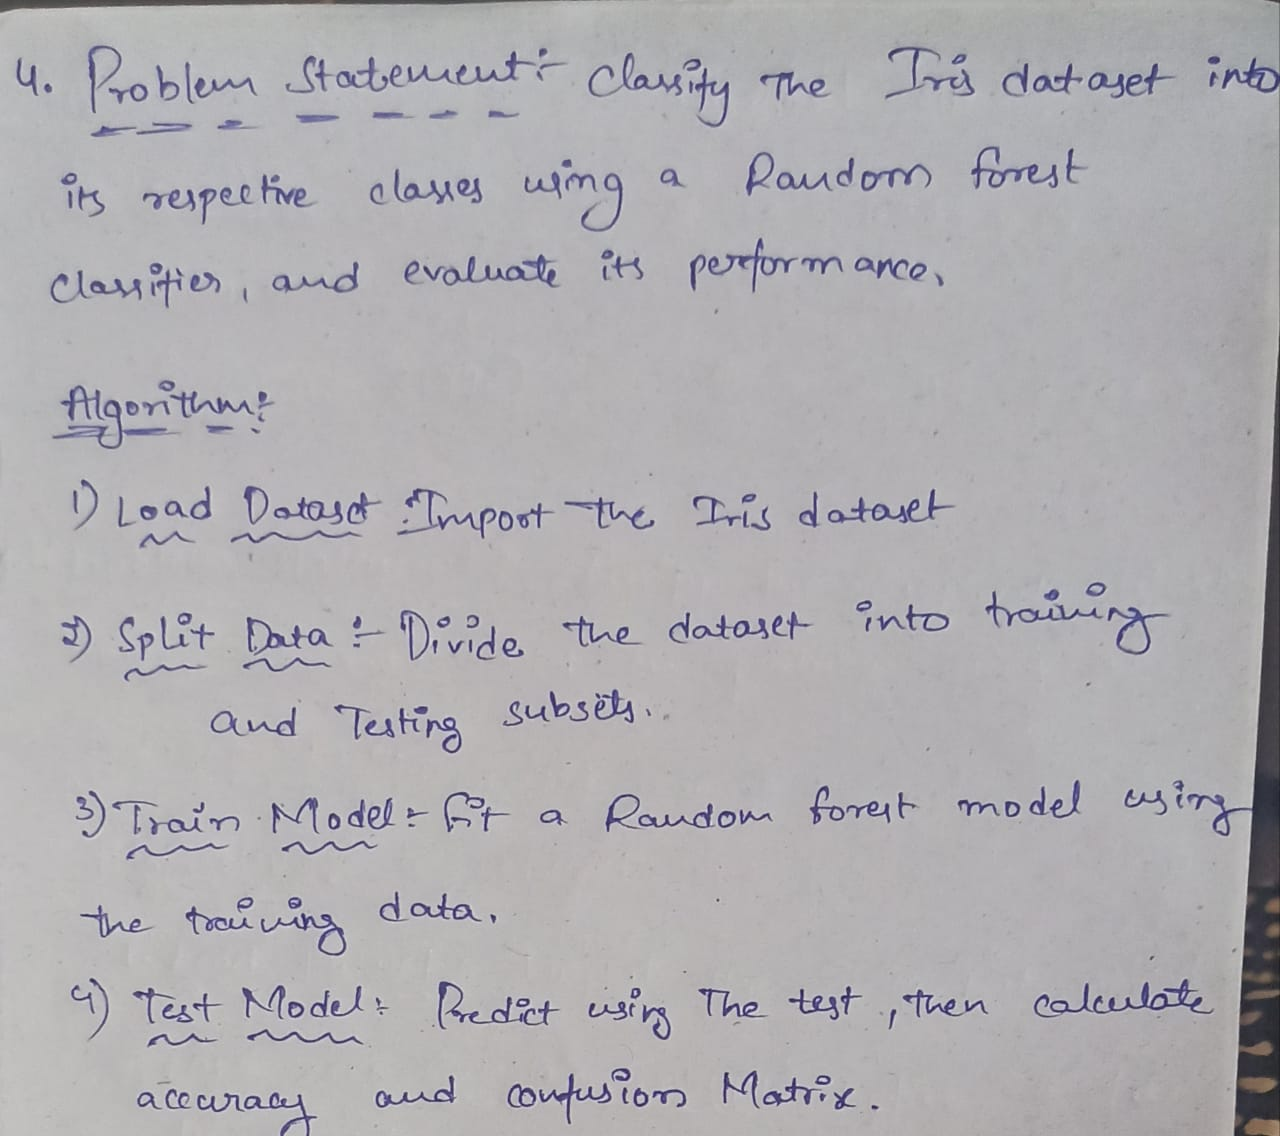 4. Problem Statement :- Classify The Iris dataset into
its respective classes using a Random forest
Classifier, and evaluate its performance.
Algorithm :
1) Load Dataset : Import the Iris dataset
2) Split Data :- Divide the dataset into training
and Testing subsets.
3) Train Model :- Fit a Random forest model using
the training data.
4) Test Model : Predict using The test, then calculate
accuracy and confusion Matrix.